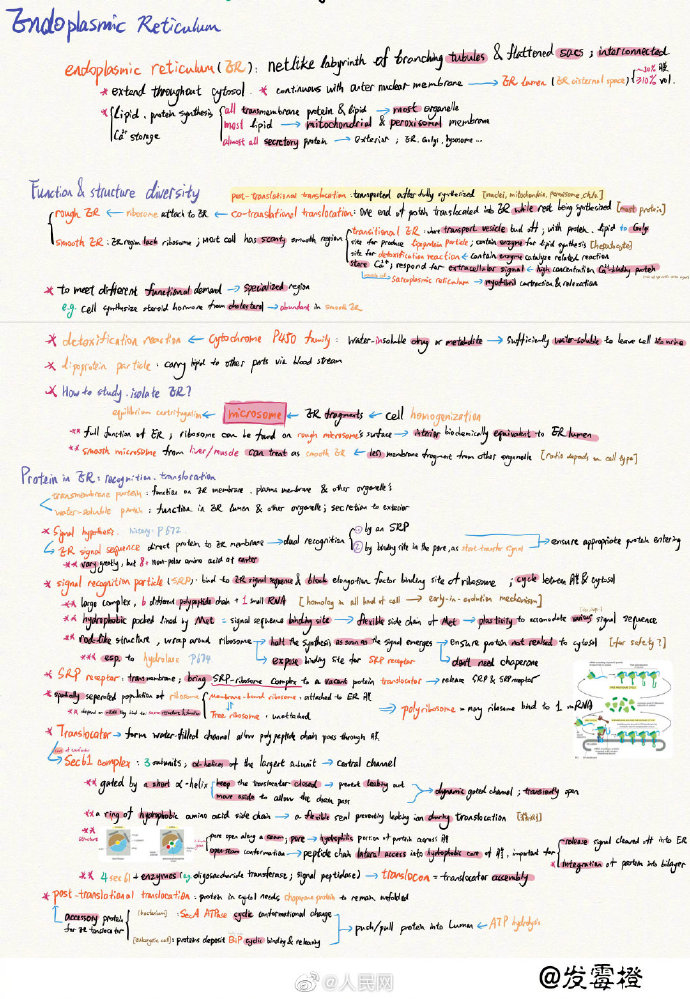 Endoplasmic Reticulum
endoplasmic reticulum (ER): netlike labyrinth of branching tubules & flattened sacs; interconnected
* extend throughout cytosol * continuous with outer nuclear membrane → ER lumen (ER cisternal space)
* lipid. protein synthesis all transmembrane protein & lipid → most organelle
most lipid → mitochondrial & peroxisomal membrane
Ca²⁺ storage almost all secretory protein → exterior; ER. Golgi. lysosome...
Function & structure diversity post-translational translocation: transported after fully synthesized [nuclei, mitochondria, peroxisome, chlo.]
rough ER ← ribosome attach to ER ← co-translational translocation: one end of protein translocated into ER while rest being synthesized [most protein]
smooth ER: ER region lack ribosome; most cell has scanty smooth region transitional ER: where transport vesicle bud off; with protein. lipid to Golgi
site for produce lipoprotein particle; contain enzyme for lipid synthesis [hepatocyte]
site for detoxification reaction ← contain enzyme catalyze related reaction
store Ca²⁺; respond for extracellular signal ← high concentration Ca²⁺-binding protein
sarcoplasmic reticulum → myofibril contraction & relaxation
* to meet different functional demand → specialized region
e.g. cell synthesize steroid hormone from cholesterol → abundant in smooth ER
* detoxification reaction ← cytochrome P450 family: water-insoluble drug or metabolite → sufficiently water-soluble to leave cell via urine
* lipoprotein particle: carry lipid to other parts via blood stream
* How to study. isolate ER?
equilibrium centrifugation ← microsome ← ER fragments ← cell homogenization
** full function of ER; ribosome can be found on rough microsome's surface → interior biochemically equivalent to ER lumen
** smooth microsome from liver/muscle can treat as smooth ER ← less membrane fragment from other organelle [ratio depends on cell type]
Protein in ER: recognition. translocation
transmembrane protein: function on ER membrane. plasma membrane & other organelle's
water-soluble protein: function in ER lumen & other organelle; secretion to exterior
* Signal hypothesis. history: P672
ER signal sequence direct protein to ER membrane → dual recognition ① by an SRP
② by binding site in the pore, as start-transfer signal → ensure appropriate protein entering
** vary greatly, but 8+ non-polar amino acid at center
* signal recognition particle (SRP): bind to ER signal sequence & block elongation factor binding site of ribosome; cycle between ER & cytosol
** large complex, 6 different polypeptide chain + 1 small RNA [homolog in all kind of cell → early-in-evolution mechanism]
** hydrophobic pocket lined by Met = signal sequence binding site → flexible side chain of Met → plasticity to accomodate various signal sequence
** rod-like structure, wrap around ribosome → halt the synthesis as soon as the signal emerges → ensure protein not realed to cytosol [for safety?]
*** esp. to hydrolase P674 expose binding site for SRP receptor don't need chaperone
* SRP receptor: transmembrane; bring SRP-ribosome complex to a vacant protein translocator → release SRP & SRP receptor
* spatially seperated population of ribosome membrane-bound ribosome: attached to ER
Free ribosome: unattached → polyribosome = many ribosome bind to 1 mRNA
* Translocator → form water-filled channel allow polypeptide chain pass through
Sec61 complex: 3 subunits; α-helices of the largest subunit → central channel
** gated by a short α-helix keep the translocator closed → prevent leaking out
move aside to allow the chain pass → dynamic gated channel; transiently open
** a ring of hydrophobic amino acid side chain → a flexible seal preventing leaking ion during translocation
** structure pore open along a seam; pore → hydrophilic portion of protein across
open seam conformation → peptide chain lateral access into hydrophobic core of, important for release signal cleaved off into ER
* integration of protein into bilayer
** 4 sec61 + enzymes (eg oligosaccharide transferase; signal peptidase) → translocon = translocator assembly
* post-translational translocation: protein in cytosol needs chaperone protein to remain unfolded
accessory protein for ER translocator [bacterium]: SecA ATPase cyclic conformational change
[eukaryotic cell]: proteins deposit BiP cyclic binding & releasing → push/pull protein into lumen ← ATP hydrolysis
@人民网
@发霉橙